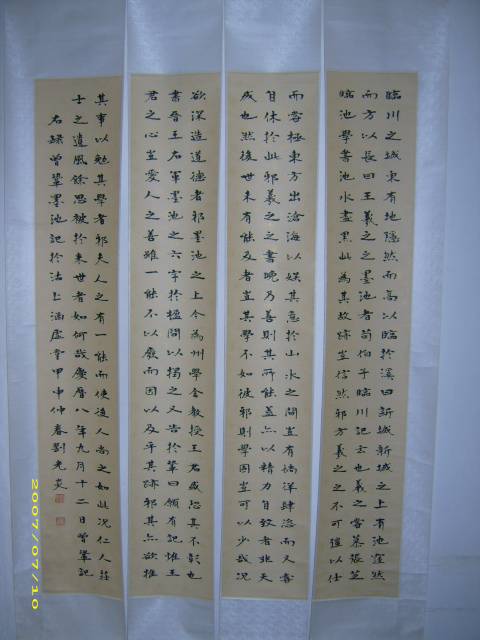 臨川之城東有地隱然而高以臨於溪曰新城新城之上有池窪然
而方以長曰王羲之之墨池者荀伯子臨川記云也羲之嘗慕張芝
臨池學書池水盡黑此為其故跡豈信然邪方羲之之不可強以仕
而嘗極東方出滄海以娛其意於山水之間豈有徜徉肆恣而又嘗
自休於此邪羲之之書晚乃善則其所能蓋亦以精力自致者非天
成也然後世未有能及者豈其學不如彼邪則學固豈可以少哉況
欲深造道德者邪墨池之上今為州學舍教授王君盛恐其不彰也
書晉王右軍墨池之六字於楹間以揭之又告於鞏曰願有記惟王
君之心豈愛人之善雖一能不以廢而因以及乎其跡邪其亦欲推
其事以勉其學者邪夫人之有一能而使後人尚之如此況仁人莊
士之遺風餘思被於來世者如何哉慶曆八年九月十二日曾鞏記
右錄曾鞏墨池記於沽上涵虛堂甲申仲春劉光炎
2007/07/10